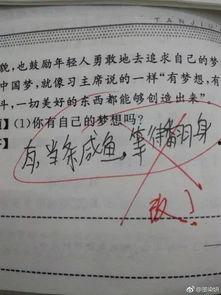 TANJIU
貌,也鼓励年轻人勇敢地去追求自己的梦
中国梦,就像习主席说的一样“有梦想,有
斗,一切美好的东西都能够创造出来”
】(1)你有自己的梦想吗?
有,当条咸鱼,等待翻身
改!
@重染明